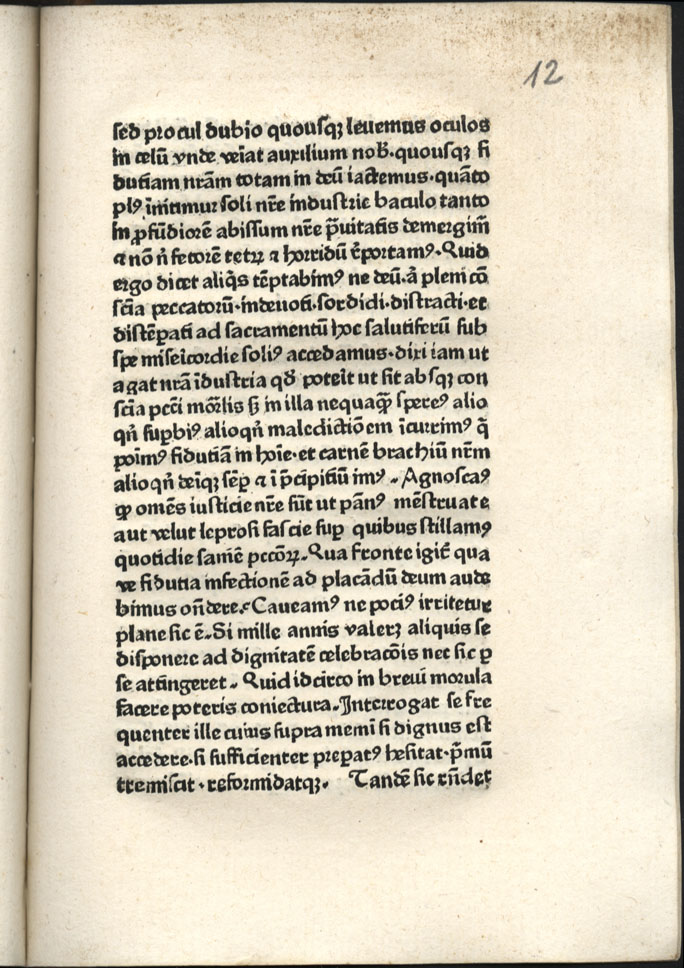 12
sed procul dubio quousqꝫ leuemus oculos
in celū vnde veīat auxilium nob̄.quousqꝫ fi
dutiam nr̄am totam in deū iactemus.quāto
plꝰ īnitimur soli nr̄e industrie baculo tanto
in ꝓfūdiorē abissum nr̄e p̄uitatis demergim̄
⁊ nō n̄ fetorē tetrꝝ ⁊ horridū ēportamꝰ.Quid
ergo dicet aliq̇s tēptabimꝰ ne deū.ā pleni cō
scīa peccatorū.indeuoti.sordidi.distracti.et
distēꝑati ad sacramentū hoc salutiferū sub
spe miseicordie soliꝰ accedamus.dixi iam ut
agat nr̄a īdustria qd̄ poteīt ut sit absqꝫ con
scīa pcc̄i mōrlis sꝫ in illa nequaqȝ spereꝰ alio
qn̄ suꝑbiꝰ alioqn̄ maledictiōem īcurrimꝰ q̄
poīmꝰ fidutiā in hoīe.et carnē brachiū nr̄m
alioqn̄ deīqꝫ sēꝑ ⁊ ī p̄cipitiū imꝰ. Agnoscaꝰ
ꝙ omēs iusticie nr̄e sūt ut pānꝰ mēstruate
aut velut leprosi fascie suꝑ quibus stillamꝰ
quotidie samē pccōꝝ.Qua fronte igit̄ qua
ve fidutia infectionē ad placādū deum aude
bimus on̄dere.Caueamꝰ ne pociꝰ irritetur
plane sic ē.Si mille annis valerꝫ aliquis se
disponere ad dignitatē celebracōis nec sic ꝑ
se attingeret. Quid idcirco in breui morula
facere poteris coniectura.Interrogat se fre
quenter ille cuius supra memī si dignus est
accedere.si sufficienter preꝑatꝰ hesitat.p̄mū
tremiscit.reformidatqꝫ. Tandē sic rn̄det